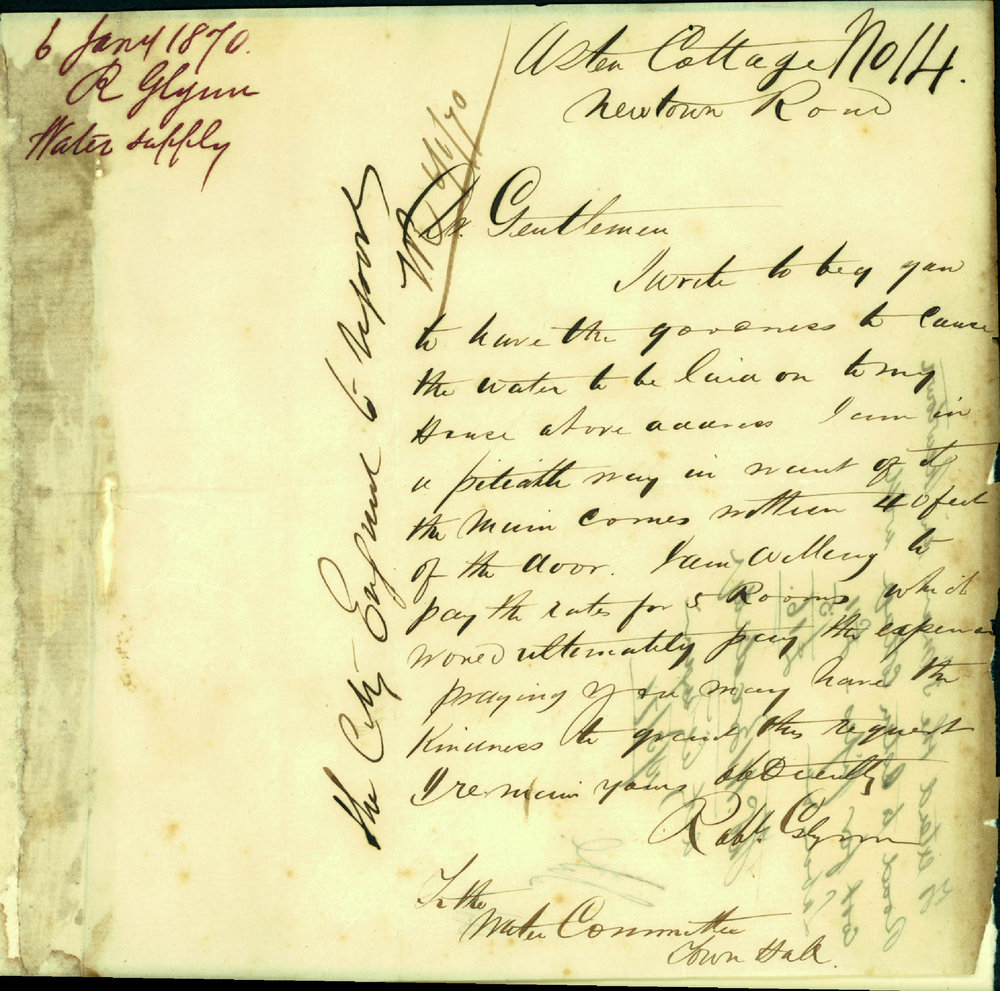 6 Jany 1870.
R Glynn
Water supply
Aston Cottage No 14.
Newtown Road
Gentlemen
I write to beg you
to have the goodness to cause
the water to be laid on to my
House above address I am in
a pitiable way in want of it
the main comes within 40 feet
of the door. I am willing to
pay the rates for 5 Rooms which
would ultimately pay the expense
praying you may have the
Kindness to grant this request
I remain yours obediently
Robt. Glynn
To the
Water Committee
Town Hall.
the City Engineer to report
4/1/70